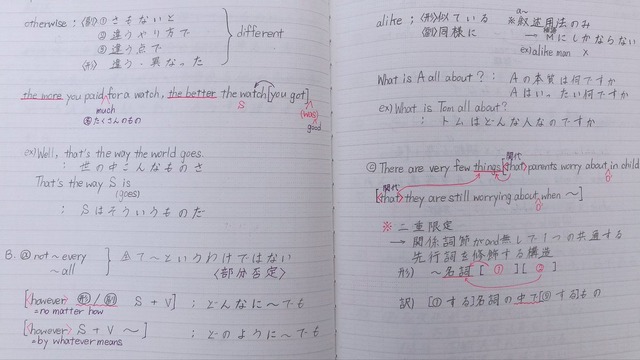 otherwise ; 〈副〉① さもないと
② 違うやり方で
③ 違う点で
〈形〉 違う・異なった
different
the more you paid for a watch, the better the watch [you get]
much
㊔たくさんのもの
S
(was)
good
ex) Well, that's the way the world goes.
: 世の中こんなものさ
That's the way S is
(goes)
; Sはそういうものだ
B. ⓐ not ~ every
~ all
全て~というわけではない
〈部分否定〉
[〈however〉 形/副 S + V] ; どんなに~でも
= no matter how
[〈however〉 S + V ~] ; どのように~でも
= by whatever means
alike ; 〈形〉似ている
〈副〉同様に
a~
※叙述用法のみ
→ 補語 にしかならない
ex) alike man ×
What is A all about? : Aの本質は何ですか
Aはいったい何ですか
ex) What is Tom all about?
: トムはどんな人なのですか
関代
ⓒ There are very few things [that parents worry about in child
関代
[that they are still worrying about when ~]
※ 二重限定
→ 関係詞節がand無しで1つの共通する
先行詞を修飾する構造
形) ~名詞 [ ① ] [ ② ]
訳) [①する]名詞の中で[②する]もの